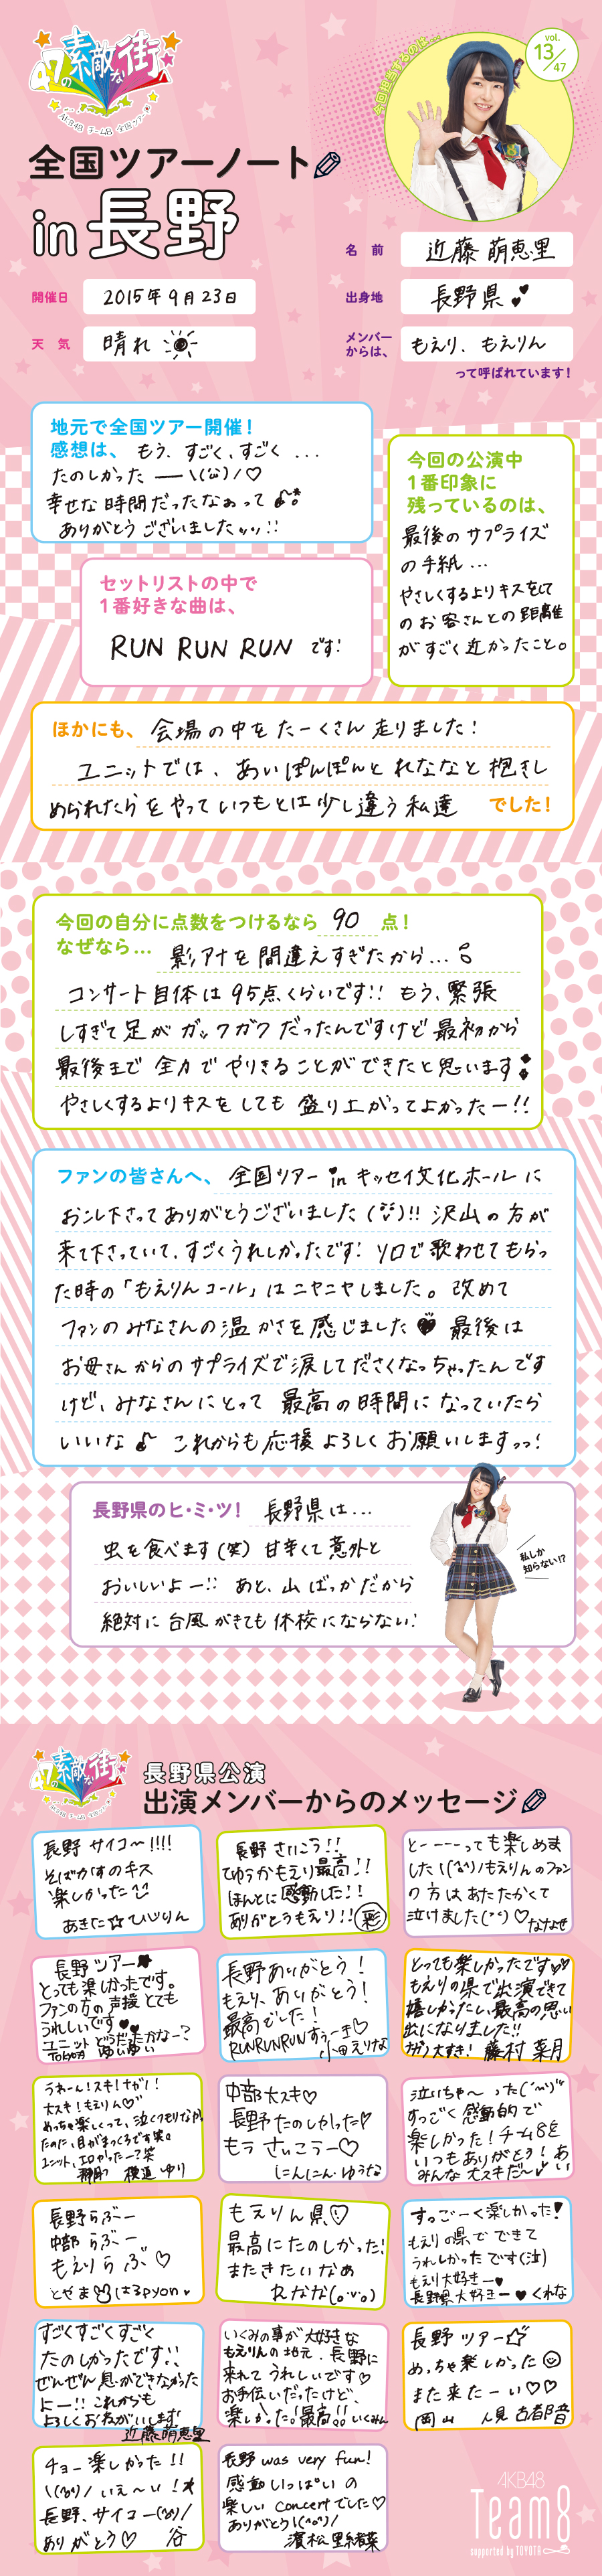 47の素敵な街
AKB48 チーム8 全国ツアー
今回担当するのは…
vol.
13/47
全国ツアーノート
in 長野
名 前 近藤 萌恵里
開催日 2015年9月23日
出身地 長野県
天 気 晴れ
メンバー
からは、 もえり、もえりん
って呼ばれています!
地元で全国ツアー開催!
感想は、 もう、すごく、すごく ...
たのしかった ー \(¨)/♡
幸せな時間だったなぁって♪
ありがとうございましたッッ!!
今回の公演中
1番印象に
残っているのは、
最後のサプライズ
の手紙...
やさしくするよりキスをして
のお客さんとの距離
がすごく近かったこと。
セットリストの中で
1番好きな曲は、
RUN RUN RUN です!
ほかにも、 会場の中をたーくさん走りました!
ユニットでは、あいぽんぽんとれななと抱きし
められたらをやっていつもとは少し違う私達 でした!
今回の自分に点数をつけるなら 90 点!
なぜなら… 影アナを間違えすぎたから...
コンサート自体は95点くらいです!! もう、緊張
しすぎて足がガックガクだったんですけど最初から
最後まで全力でやりきることができたと思います
やさしくするよりキスをしても盛り上がってよかったー!!
ファンの皆さんへ、 全国ツアー in キッセイ文化ホールに
おこし下さってありがとうございました(¨)!! 沢山の方が
来て下さっていて、すごくうれしかったです! ソロで歌わせてもらっ
た時の「もえりんコール」はニヤニヤしました。改めて
ファンのみなさんの温かさを感じました♥ 最後は
お母さんからのサプライズで涙してださくなっちゃったんです
けど、みなさんにとって最高の時間になっていたら
いいな♪ これからも応援よろしくお願いしますっっ!
長野県のヒ・ミ・ツ! 長野県は...
虫を食べます(笑) 甘辛くて意外と
おいしいよー!! あと、山ばっかだから
絶対に台風がきても休校にならない!
私しか
知らない!?
47の素敵な街
AKB48 チーム8 全国ツアー
長野県公演
出演メンバーからのメッセージ
長野サイコ〜!!!!
そばかすのキス
楽しかった
あきに☆ひじりん
長野さいこう!!
てゆうかもえり最高!!
ほんとに感動した!!
ありがとうもえり!! 彩
とーーーっても楽しめま
した もえりんのファン
の方はあたたかくて
泣けました ♡ ななせ
長野ツアー
とっても楽しかったです。
ファンの方の声援とても
うれしいです♥♥
ユニットどうだったかなー?
TOKYO ゆいゆい
長野ありがとう!
もえり、ありがとう!
最高でした!
RUNRUNRUNすぅーき♡
小田えりな
とっても楽しかったです
もえりの県で出演できて
嬉しかったし、最高の思い
出になりました!!
大すき! 藤村 菜月
うわーん!スキ!ナガノ!
大スキ!もえりん♡
めっちゃ楽しくって、泣くつもりなか
たのに、目がまっくろです笑
ユニット、エロやったー?笑
静岡 横道 ゆり
中部大スキ♡
長野たのしかった!
もうさいこうー♡
にんにん・ゆうな
泣いちゃ〜った
すっごく感動的で
楽しかった!チーム8を
いつもありがとう! あい
みんな大スキだ〜
長野らぶー
中部らぶー
もえりらぶ♡
とやま はるpyon
もえりん県♡
最高にたのしかった!
またきたいなぁ
れなな(。·v·。)
すっごーく楽しかった!
もえりの県でできて
うれしかったです(泣)
もえり大好きー♥
長野県大好きー♥ くれな
すごくすごくすごく
たのしかったです!!
ぜんぜん息ができなかった
よー!! これからも
よろしくおねがいします
近藤萌恵里
いくみの事が大好きな
もえりんの地元、長野に
来れてうれしいです♡
お手伝いだったけど、
楽しかった。最高!! いくみん
長野ツアー☆
めっちゃ楽しかった
また来たーい♡♡
岡山 人見古都音
チョー楽しかった!!
いぇ〜い!
長野、サイコー
ありがとう♡ 谷
長野 was very fun!
感動いっぱいの
楽しい concertでした♡
ありがとう
濵松里緒菜
AKB48
Team8
supported by TOYOTA